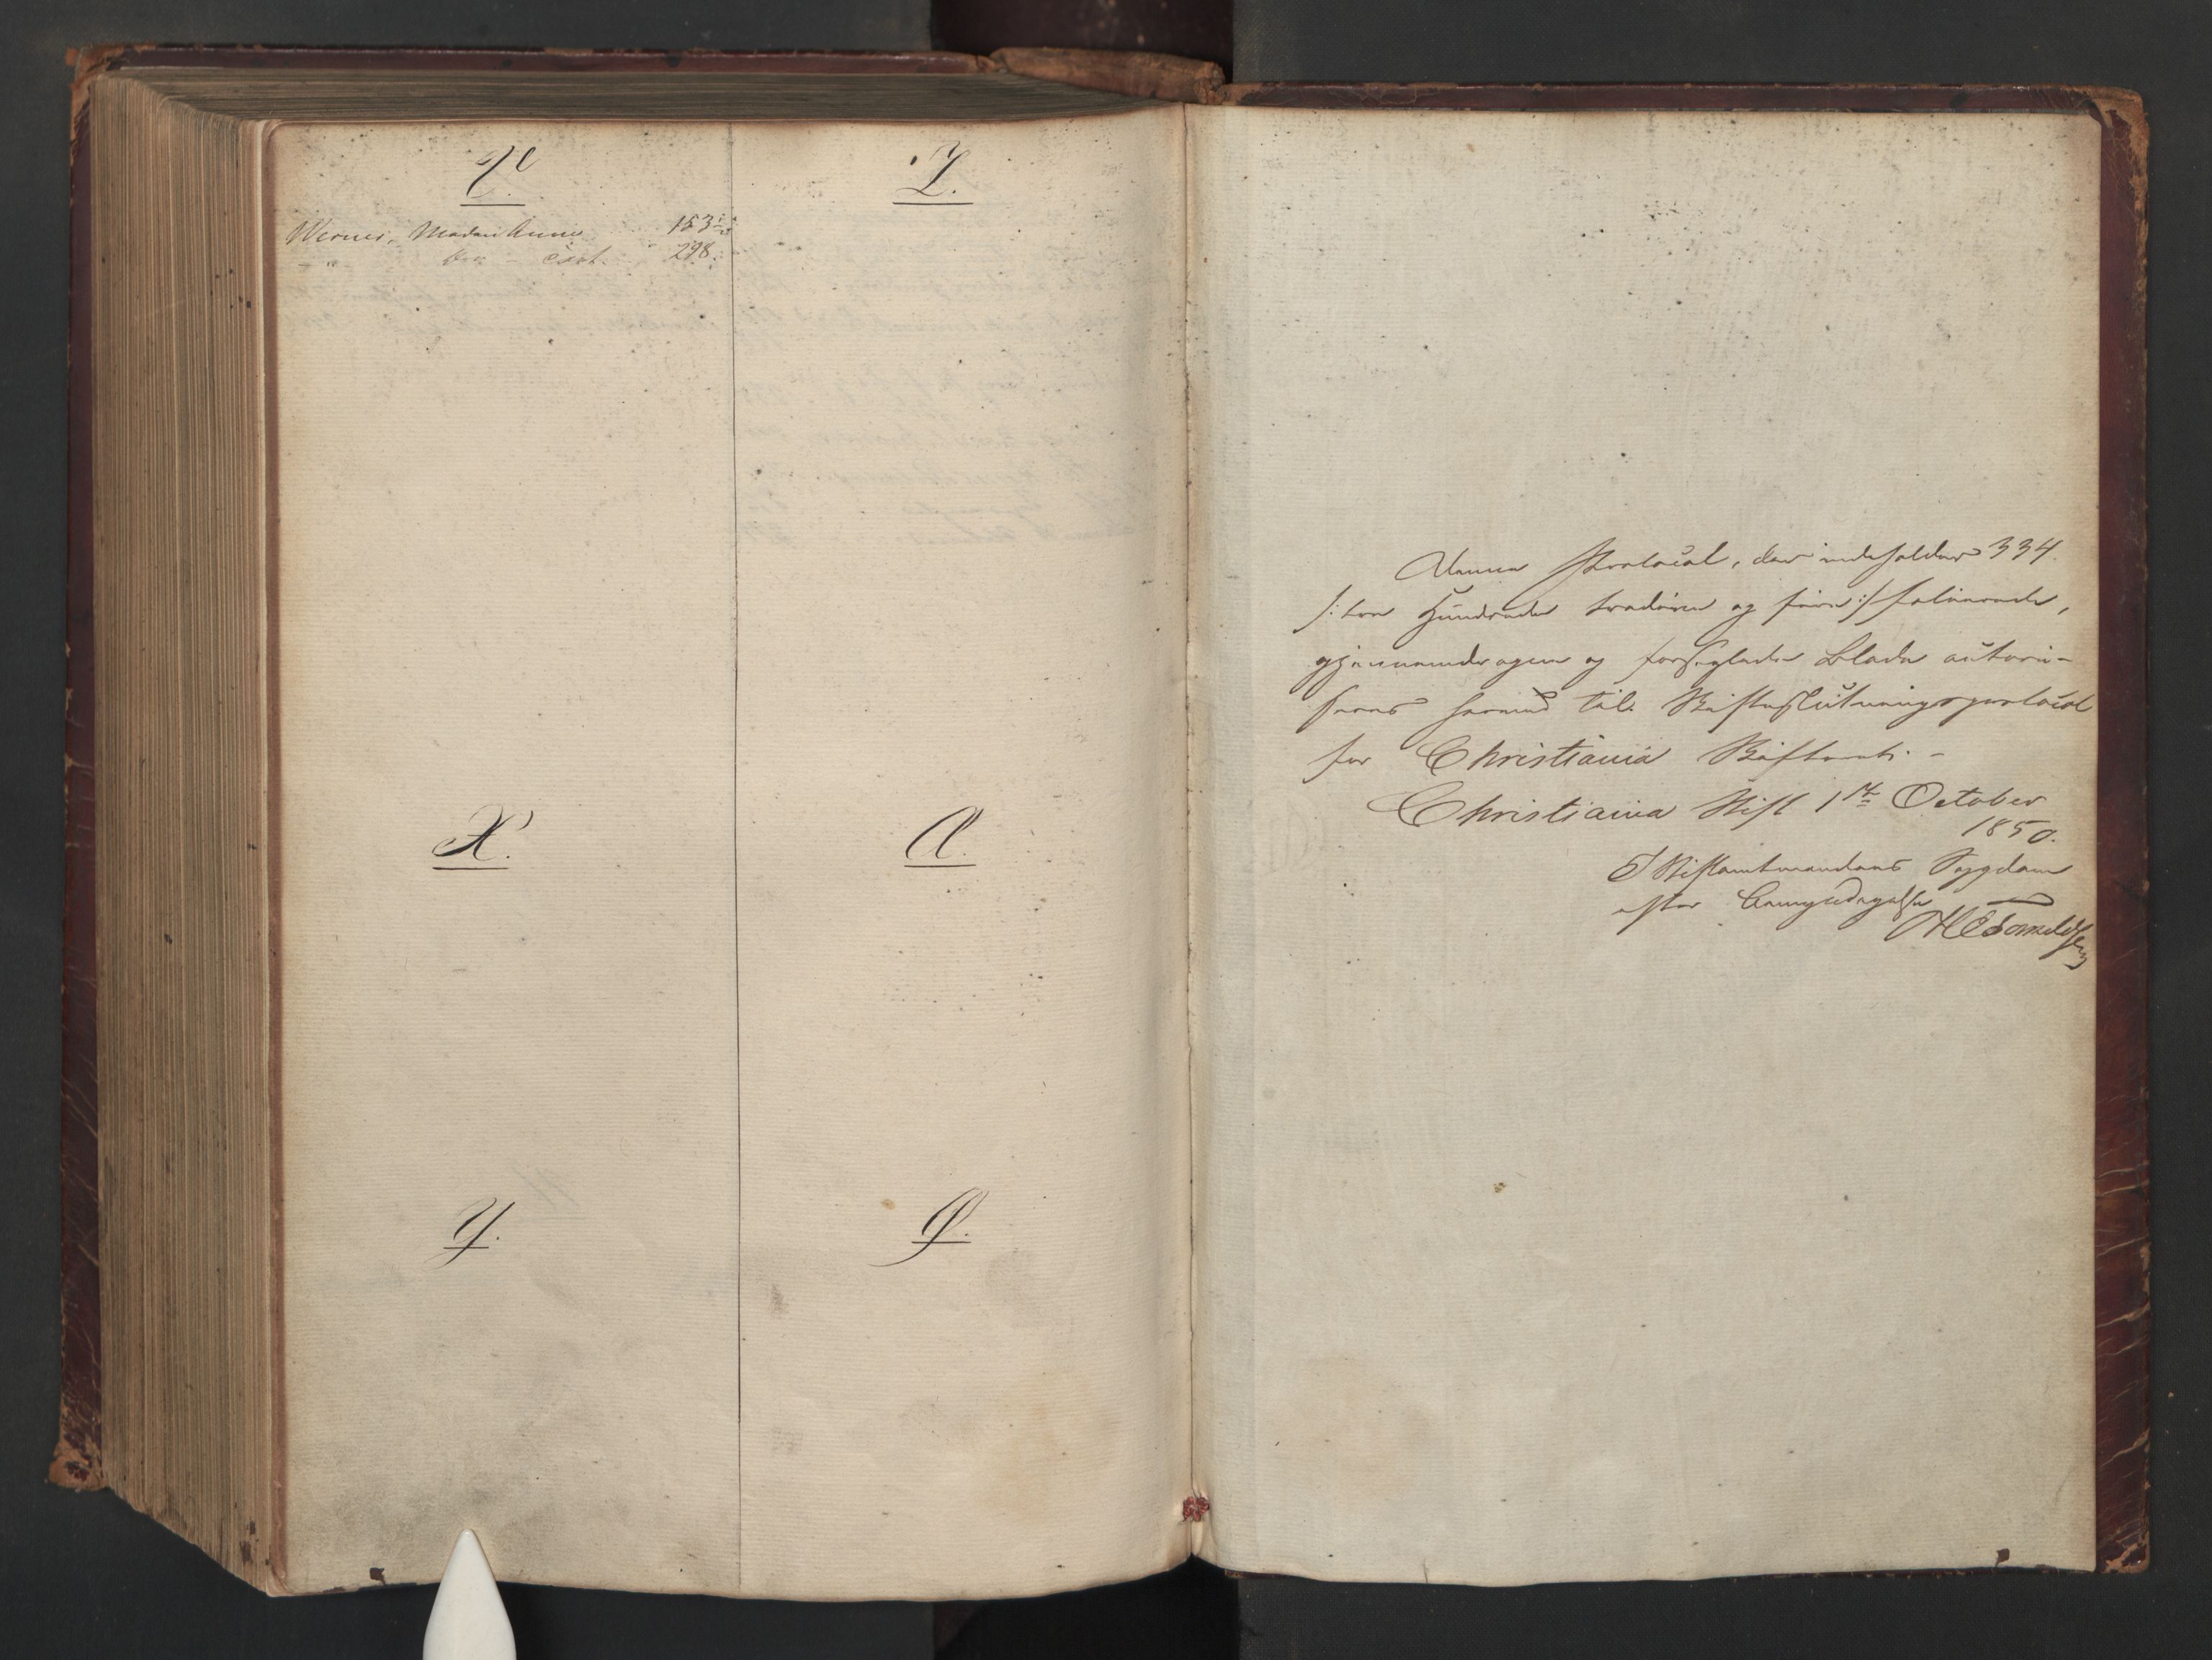 V.
Werner, Madam Anne 153
298.
X.
Y.
Z.
A.
Ø.
Denne Protocol, der indeholder 334.
/: tre Hundrede tredive og fire :/ folierede,
gjennemdragne og forseglede Blade autori-
seres hermed til Skifteslutningsprotocol
for Christiania Skifteret. –
Christiania Stift 1ste October
1850.
I Stiftamtmandens Sygdom
efter Bemyndigelse